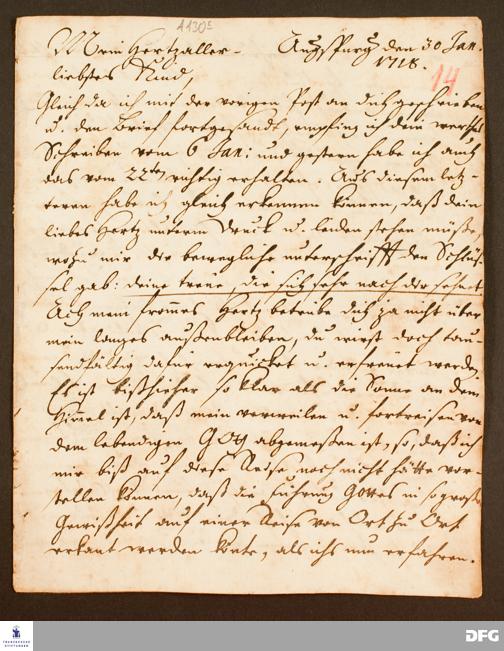 A 130c
Mein Hertzaller-
Augspurg den 30 Jan.
liebstes Kind,
1718.
14
Gleich da ich mit der vorigen Post an dich geschrieben
u. den Brief fortgesandt, empfing ich dein werthes
Schreiben vom 6 Jan: und gestern habe ich auch
das vom 22ten richtig erhalten. Aus diesem letz-
teren habe ich gleich erkennen können, daß dein
liebes Hertz unterm Druck u. leiden stehen müße,
wozu mir die bewegliche unterschrifft den Schlüs-
sel gab: deine treue, die sich sehr nach dir sehnet
Ach mein frommes Hertz betrübe dich ja nicht über
mein langes außenbleiben, du wirst doch tau-
sendfältig dafür erquicket u. erfreuet werden
Es ist bißhieher so klar als die Sonne an dem
Himel ist, daß mein verweilen u. fortreisen von
dem lebendigen GOtt abgemeßen ist, so, daß ich
mir biß auf diese Reise noch nicht hätte vor-
stellen können, daß die führung Gottes in so großer
Gewißheit auf einer Reise von Ort zu Ort
erkant werden könte, als ichs nun erfahren.
FRANCKESCHE
STIFTUNGEN
DFG